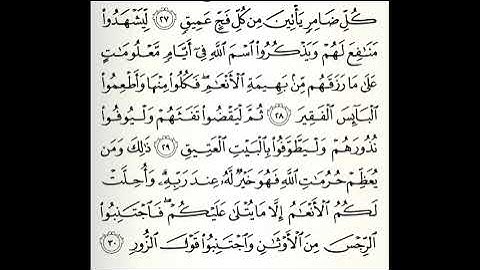 كُلِّ ضَامِرٍ يَأْتِينَ مِن كُلِّ فَجٍّ عَمِيقٍ ٢٧ لِّيَشْهَدُوا۟
مَنَٰفِعَ لَهُمْ وَيَذْكُرُوا۟ ٱسْمَ ٱللَّهِ فِىٓ أَيَّامٍ مَّعْلُومَٰتٍ
عَلَىٰ مَا رَزَقَهُم مِّنۢ بَهِيمَةِ ٱلْأَنْعَٰمِ ۖ فَكُلُوا۟ مِنْهَا وَأَطْعِمُوا۟
ٱلْبَآئِسَ ٱلْفَقِيرَ ٢٨ ثُمَّ لْيَقْضُوا۟ تَفَثَهُمْ وَلْيُوفُوا۟
نُذُورَهُمْ وَلْيَطَّوَّفُوا۟ بِٱلْبَيْتِ ٱلْعَتِيقِ ٢٩ ذَٰلِكَ وَمَن
يُعَظِّمْ حُرُمَٰتِ ٱللَّهِ فَهُوَ خَيْرٌ لَّهُۥ عِندَ رَبِّهِۦ ۗ وَأُحِلَّتْ
لَكُمُ ٱلْأَنْعَٰمُ إِلَّا مَا يُتْلَىٰ عَلَيْكُمْ ۖ فَٱجْتَنِبُوا۟
ٱلرِّجْسَ مِنَ ٱلْأَوْثَٰنِ وَٱجْتَنِبُوا۟ قَوْلَ ٱلزُّورِ ٣٠